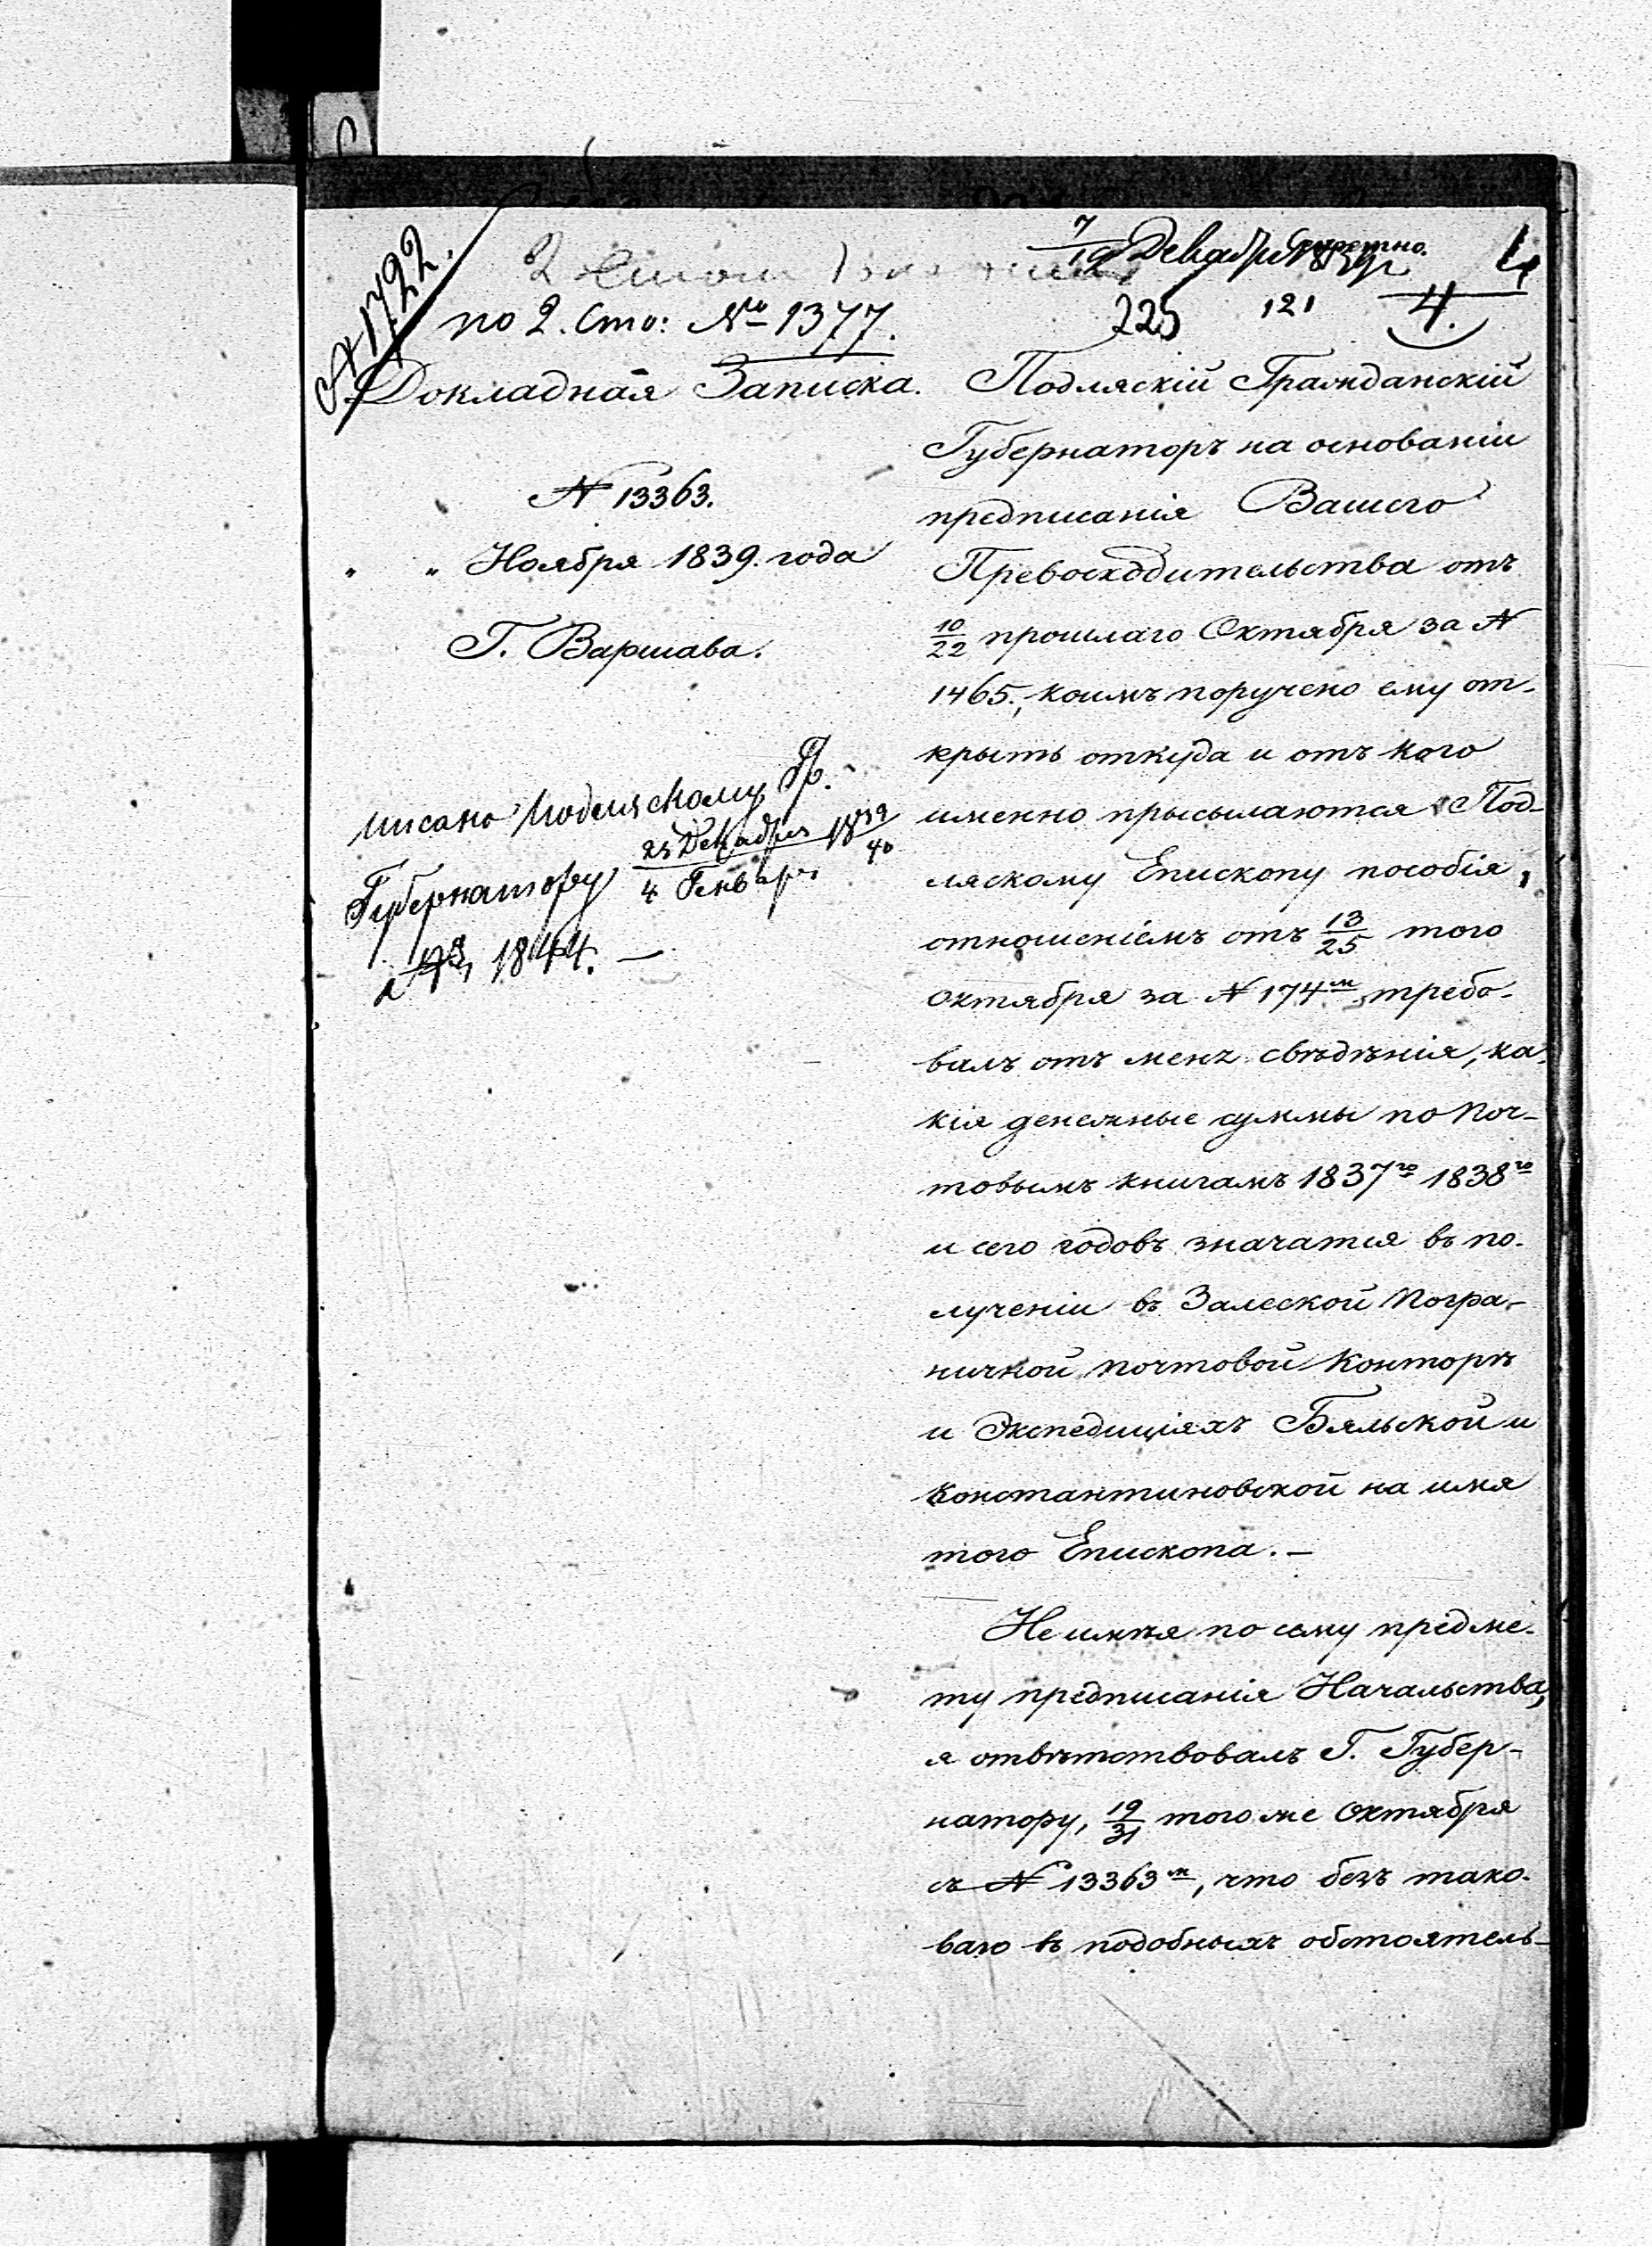 N 1722.
7/19 Декабря 1839 г.
Секретно.
4
по 2. Сто: № 1377.
225 121 4.
Докладная Записка.
N 13363.
„ „ Ноября 1839. года
Г. Варшава.
писано Подляскому Гр.
Губернатору 23 Декабря / 4 Генваря 1839/40
1844. —
Подляскій Гражданскій
Губернаторъ на основаніи
предписанія Вашего
Превосходительства отъ
10/22 прошлаго Октября за N
1465., коимъ поручено ему от-
крыть откуда и отъ кого
именно прысылаются Под-
ляскому Епископу пособія,
отношеніемъ отъ 13/25 того
Октября за N 174м, требо-
валъ отъ меня свѣдѣнія, ка-
кія денежные суммы по Поч-
товымъ книгамъ 1837го 1838го
и сего годовъ значатся въ по-
лученіи въ Залеской Погра-
ничной Почтовой Конторѣ
и Экспедиціяхъ Бяльской и
Константиновской на имя
того Епископа. —
Не имѣя по сему предме-
ту предписанія Начальства,
я отвѣтствовалъ Г. Губер-
натору, 19/31 того же Октября
съ N 13363м, что безъ тако-
ваго въ подобныхъ обстоятель-